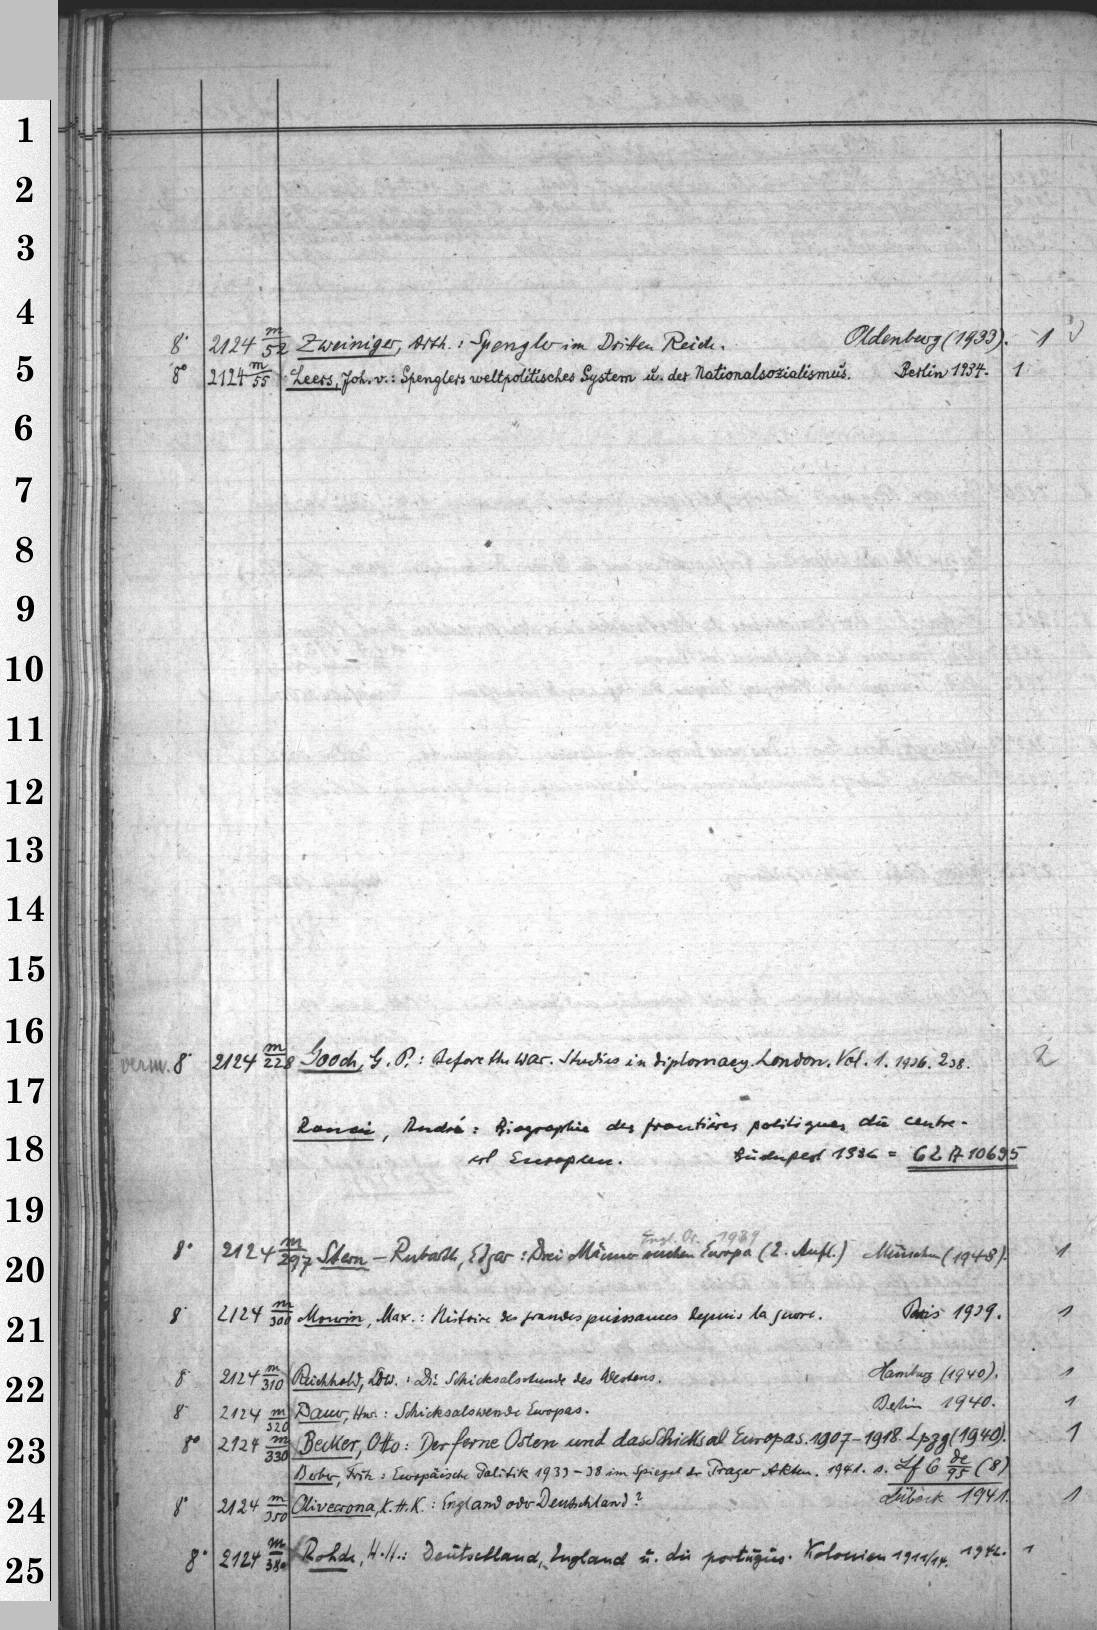 1
2
3
4
8° 2124 m/52 Zweiniger, Arth.: Spengler im Dritten Reich. Oldenburg (1933). 1
5
8° 2124 m/55 Leers, Joh. v.: Spenglers weltpolitisches System u. der Nationalsozialismus. Berlin 1934. 1
6
7
8
9
10
11
12
13
14
15
16
verm. 8° 2124 m/228 Gooch, G. P.: Before the War. Studies in diplomacy. London. Vol. 1. 1936. 2 38. 2
17
André: Biographie des frontières politiques du centre-
18
Européen. Budapest 1936 = 62 A 10695
19
Engl. Or. 1939
8° 2124 m/297 Stern-Rubarth, Edgar: Drei Männer suchen Europa (2. Aufl.) München (1948). 1
20
8° 2124 m/300 Max.: Histoire des grandes puissances depuis la guerre. Paris 1939. 1
21
8° 2124 m/310 Reichhold, Ldw.: Die Schicksalsstunde des Westens. Hamburg (1940). 1
22
8° 2124 m/320 Baur, Hnr.: Schicksalswende Europas. Berlin 1940. 1
23
8° 2124 m/330 Becker, Otto: Der ferne Osten und das Schicksal Europas. 1907-1918. Lpzg (1940). 1
Berber, Fritz: Europäische Politik 1933-38 im Spiegel der Prager Akten. 1941. s. Lf 6 de/95 (8)
24
8° 2124 m/350 Olivecrona, K. H. K.: England oder Deutschland? Lübeck 1941. 1
8° 2124 m/380 Rohde, H.H.: Deutschland, England u. die portugies. Kolonien 1911/14. 1942. 1
25